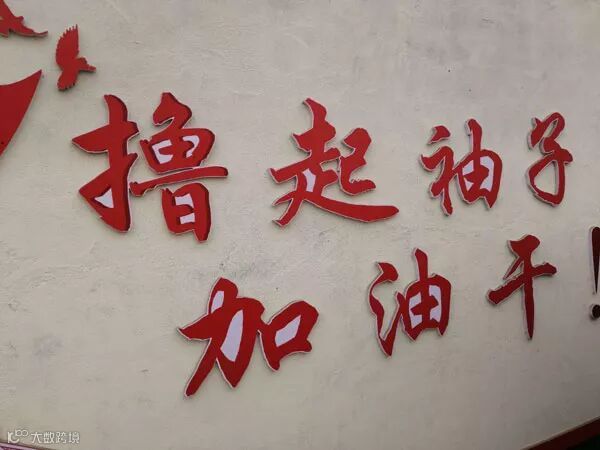 撸起袖子
加油干!
大数跨境